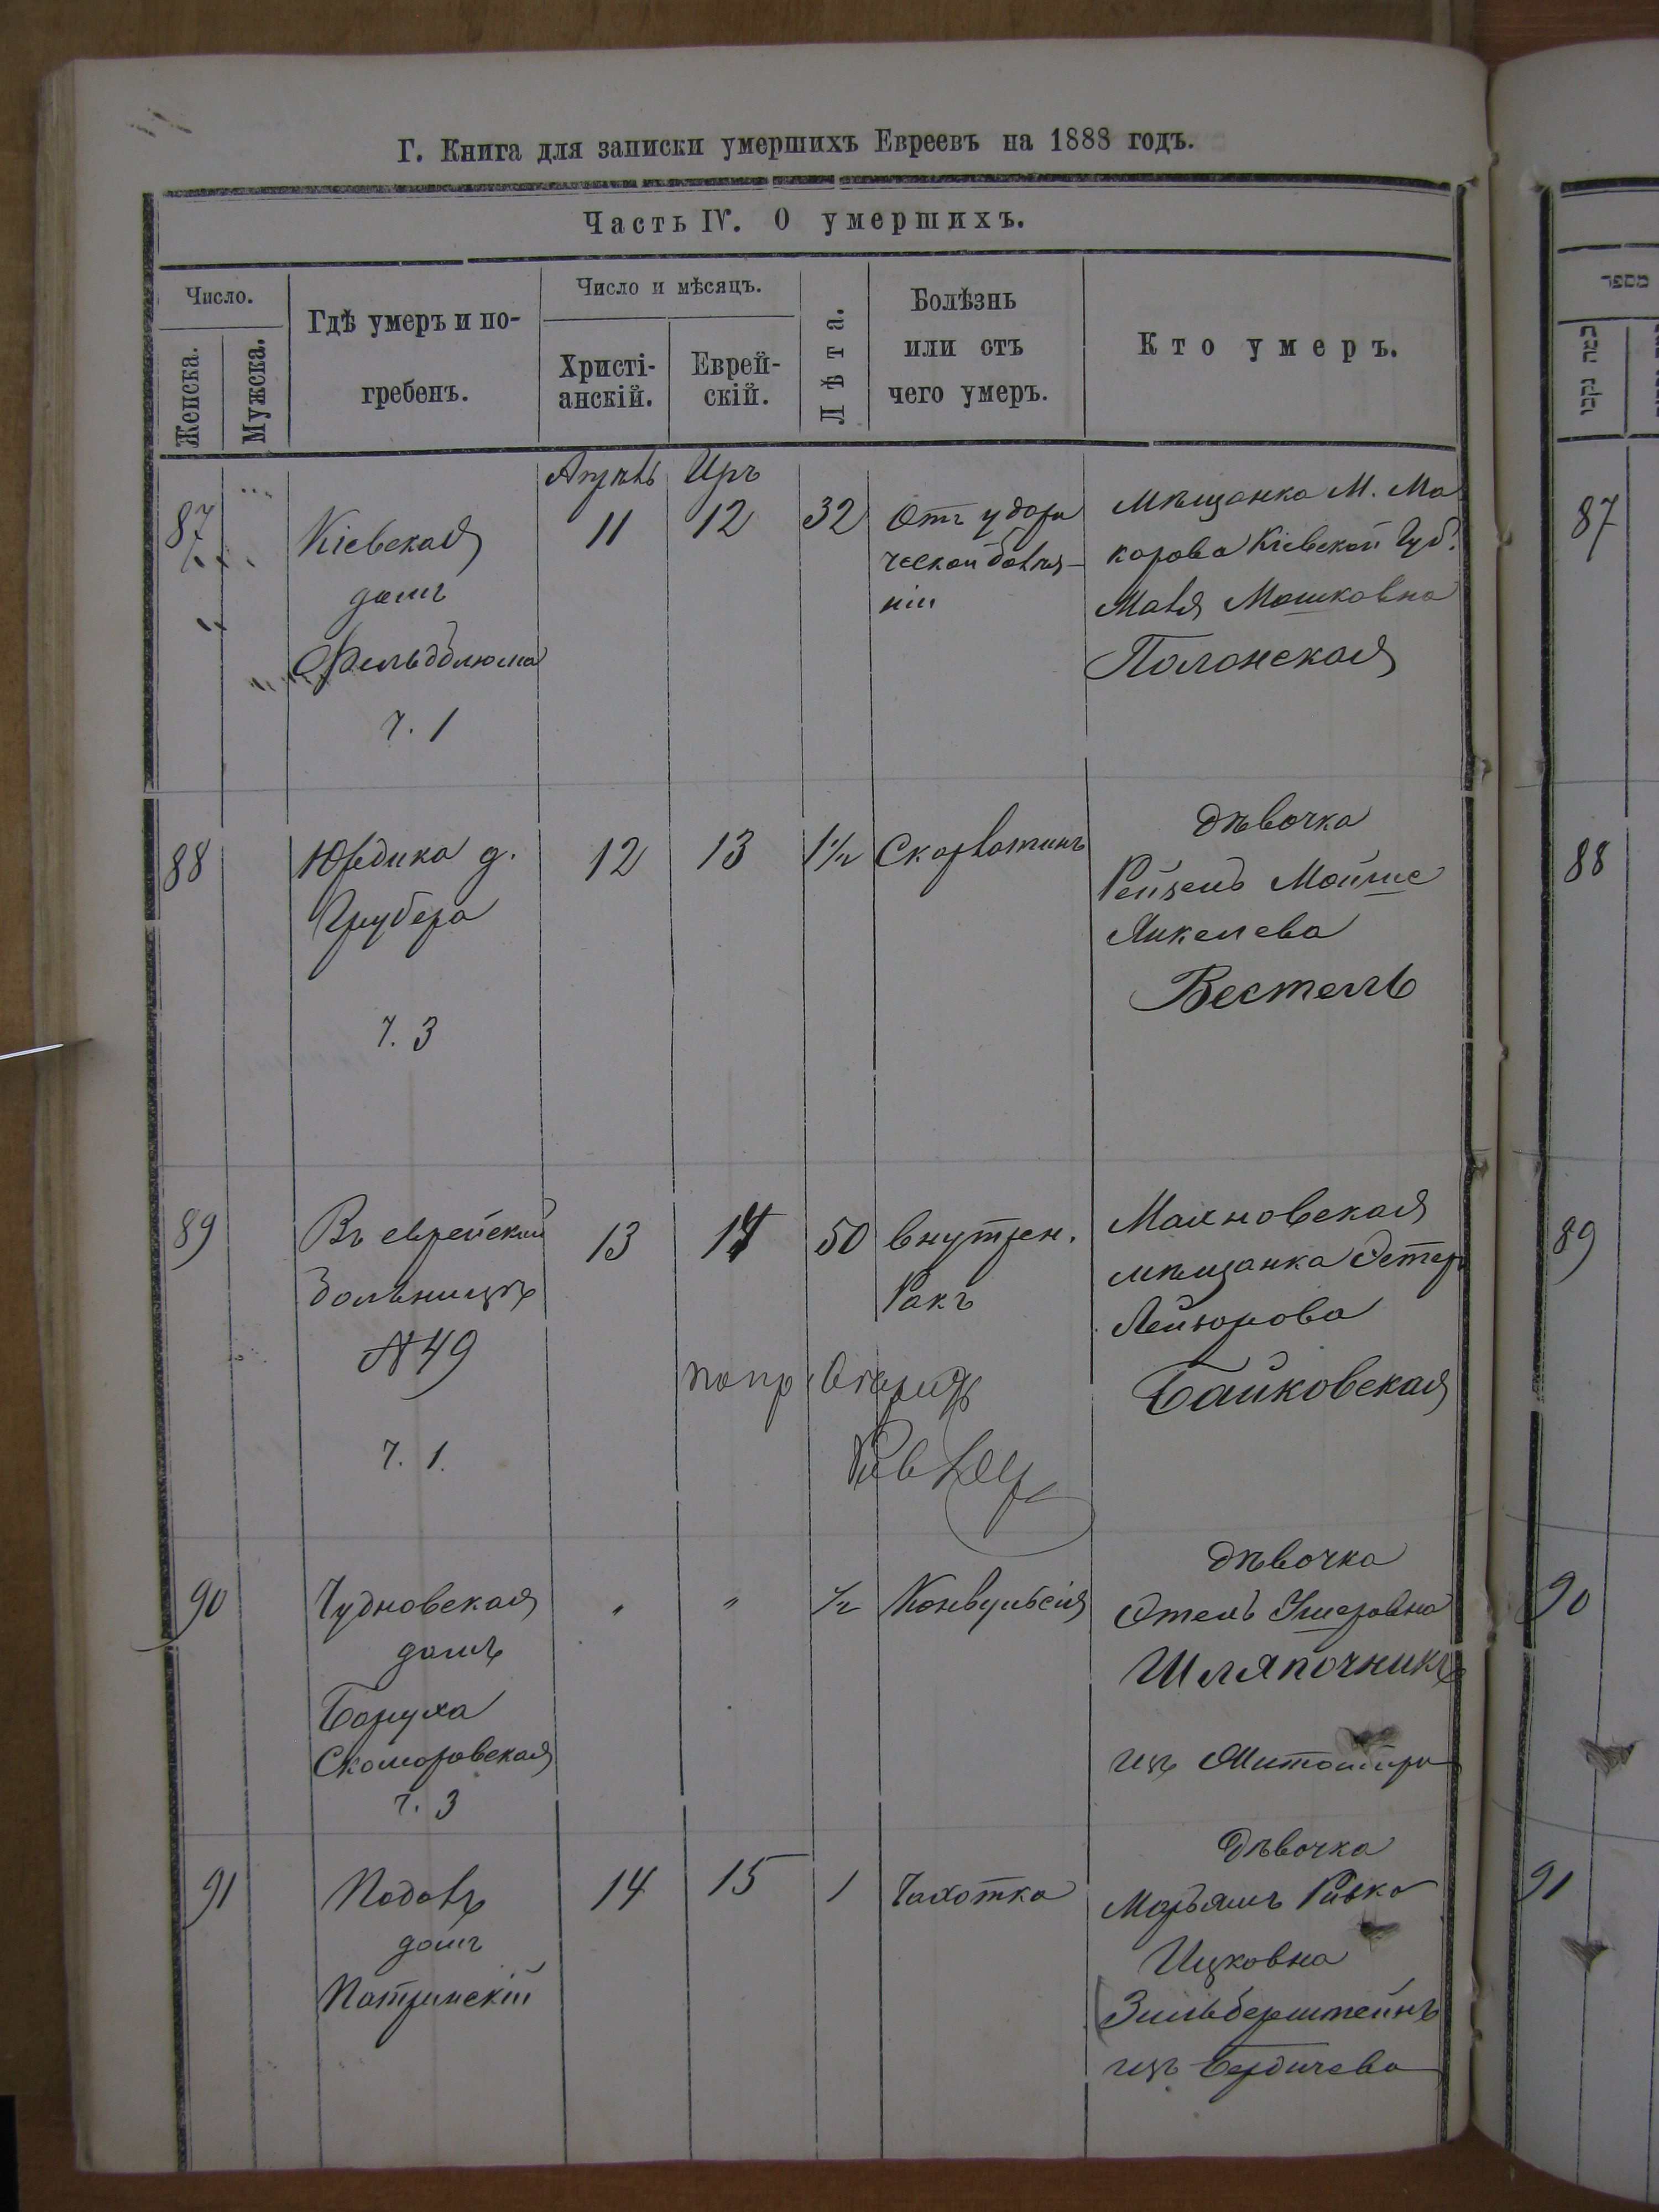 Г. Книга для записки умершихъ Евреевъ на 1888 годъ.
Часть IV. О умершихъ.
Число.
Женска.
Мужска.
Гдѣ умеръ и по-
гребенъ.
Число и мѣсяцъ.
Христі-
анскій.
Еврей-
скій.
Лѣта.
Болѣзнь
или отъ
чего умеръ.
Кто умеръ.
מספר
87
Кіевская
домъ
Фельдблюма
ч. 1
Апрѣль
11
Иръ
12
32
Отъ
Мѣщанка М. Ма
карова Кіевской Губ.
Маля Мошковна
Полонская
87
88
Юрдика д.
Грубера
ч. 3
12
13
1 1/2
Скарлатинъ
Дѣвочка
Рейзель Мойше
Янкелева
Вестель
88
89
Въ еврейскій
больницѣ
№ 49
ч. 1.
13
14
50
внутрен.
Ракъ
Махновская
мѣщанка Эстеръ
Лейзорова
Байковская
89
90
Чудновская
домъ
Баруха
Скоморовская
ч. 3
"
"
1/2
Конвульсія
Дѣвочка
Этель Умеровна
Шляпочникъ
изъ Житоміра
90
91
Подолъ
домъ
14
15
1
Чахотка
Дѣвочка
Марьямъ Ривка
Ицковна
Зильберштейнъ
изъ Бердичева
91